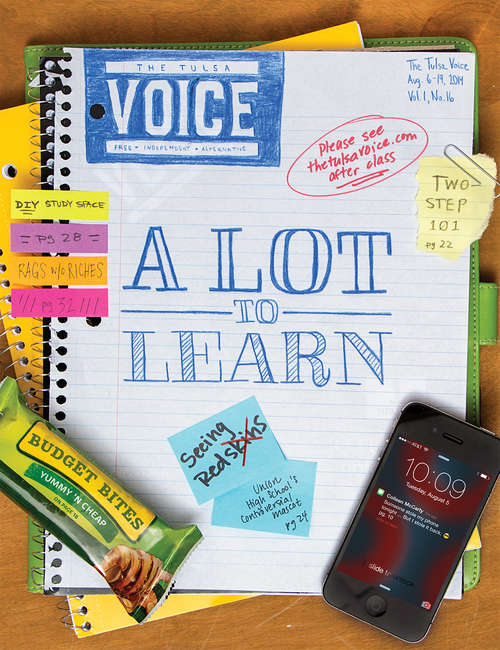 THE TULSA
VOICE
FREE • INDEPENDENT • ALTERNATIVE
The Tulsa Voice
Aug. 6-19, 2014
Vol. 1, No. 16
please see
thetulsavoice.com
after class
TWO-
STEP
101
pg 22
DIY STUDY SPACE
= pg 28 =
RAGS n/o RICHES
\\/ pg 32 ///
A LOT
TO
LEARN
Seeing
Redskins
Union
High School's
controversial
mascot
pg 24
BUDGET BITES
YUMMY 'N CHEAP
ON PAGE 18
AT&T
10:09
Tuesday, August 6
Colleen McCarty
Someone stole my phone
tonight — But I stole it back.
pg. 10
slide to